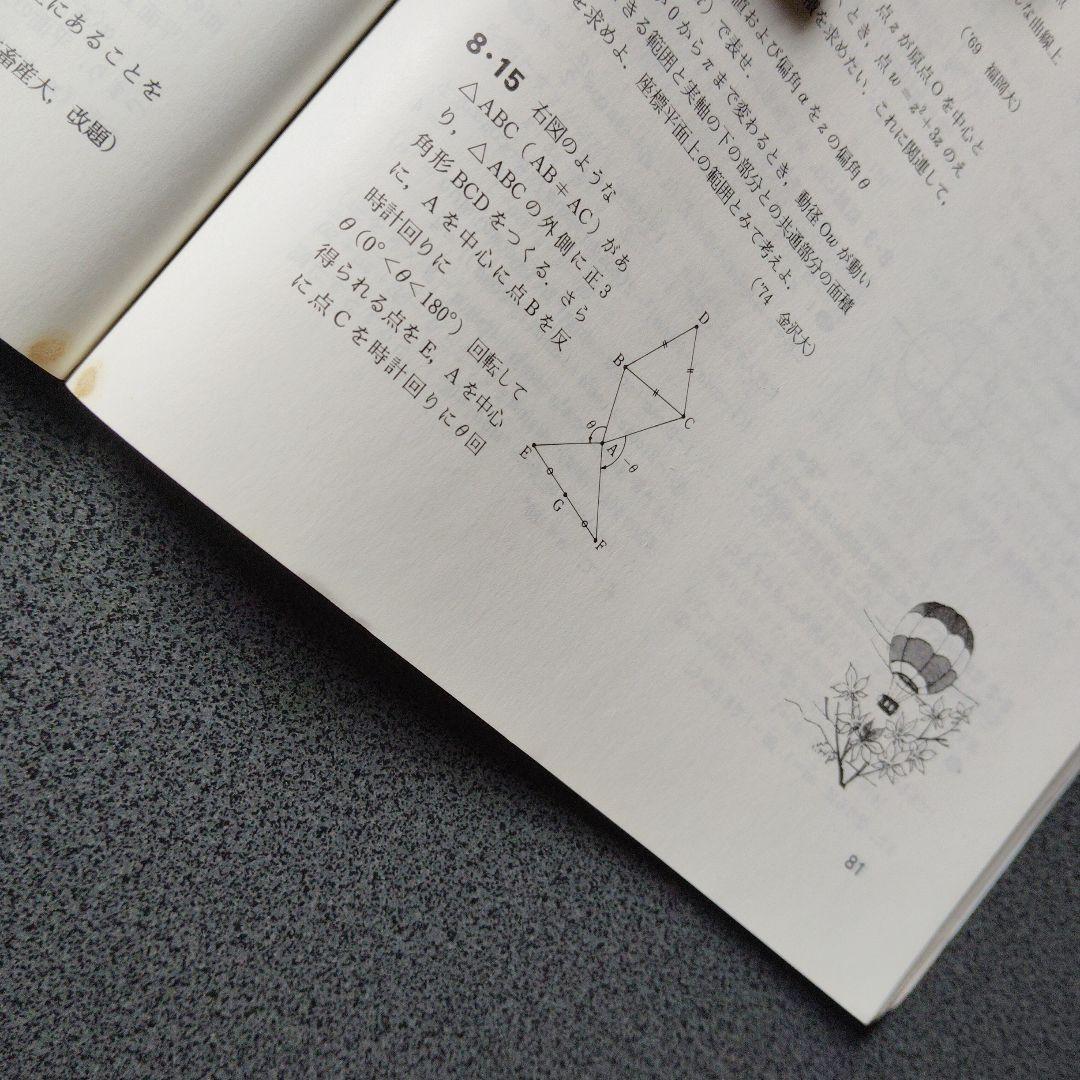 上にあることを
畜産大, 改題)
な曲線上
('69 福岡大)
点 z が原点 O を中心と
とき, 点 w＝z²＋3z のえ
を求めたい. これに関連して,
値および偏角 α を z の偏角 θ
で表せ.
0 から π まで変わるとき, 動径 Ow が動い
きる範囲と実軸の下の部分との共通部分の面積
を求めよ. 座標平面上の範囲とみて考えよ.
('74 金沢大)
8・15 右図のような
△ABC（AB≠AC）があ
り, △ABC の外側に正 3
角形 BCD をつくる. さら
に, A を中心に点 B を反
時計回りに
θ（0°＜θ＜180°）回転して
得られる点を E, A を中心
に点 C を時計回りに θ 回
D
B
C
θ
A
−θ
E
G
F
81